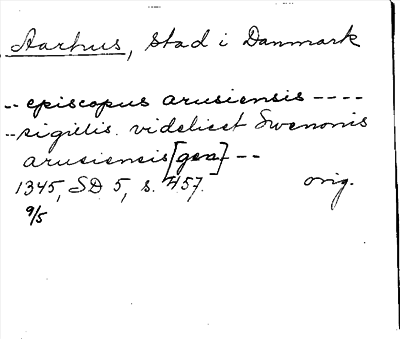 Aarhus, Stad i Danmark
-- episcopus arusiensis ----
-- sigillis videlicet Swenonis
arusiensis [gea] --
1345, SD 5, s. 457. orig.
9/5